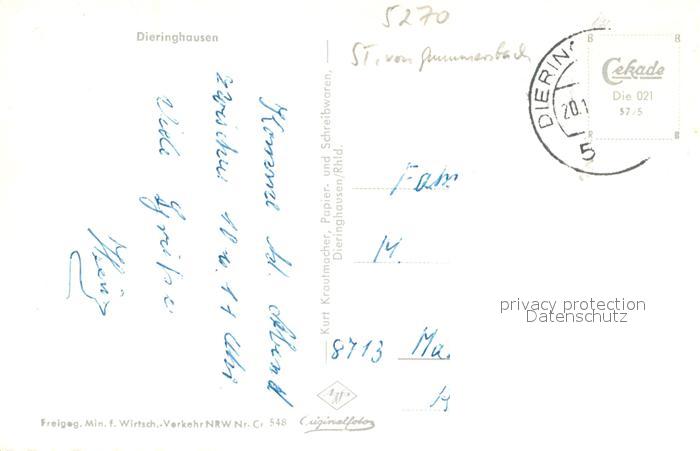 5270
ST. von Gummersbach
Dieringhausen
DIERIN
20.1
5
Cekade
Die 021
57/5
Kurt Krautmacher, Papier- und Schreibwaren,
Dieringhausen/Rhld.
Komme
zwischen 10 u. 11 Uhr.
Viele Grüße
Heinz
Fam
M.
8713 Ma.
privacy protection
Datenschutz
Agfa
Originalfoto
Freigeg. Min. f. Wirtsch.-Verkehr NRW Nr. Cr 548